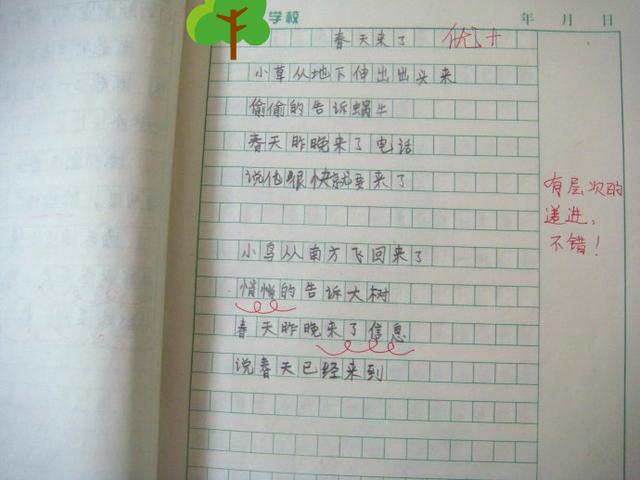 学校
年 月 日
春天来了
优+
小草从地下伸出出头来
偷偷的告诉蜗牛
春天昨晚来了电话
说他很快就要来了
有层次的
递进,
不错!
小鸟从南方飞回来了
悄悄的告诉大树
春天昨晚来了信息
说春天已经来到